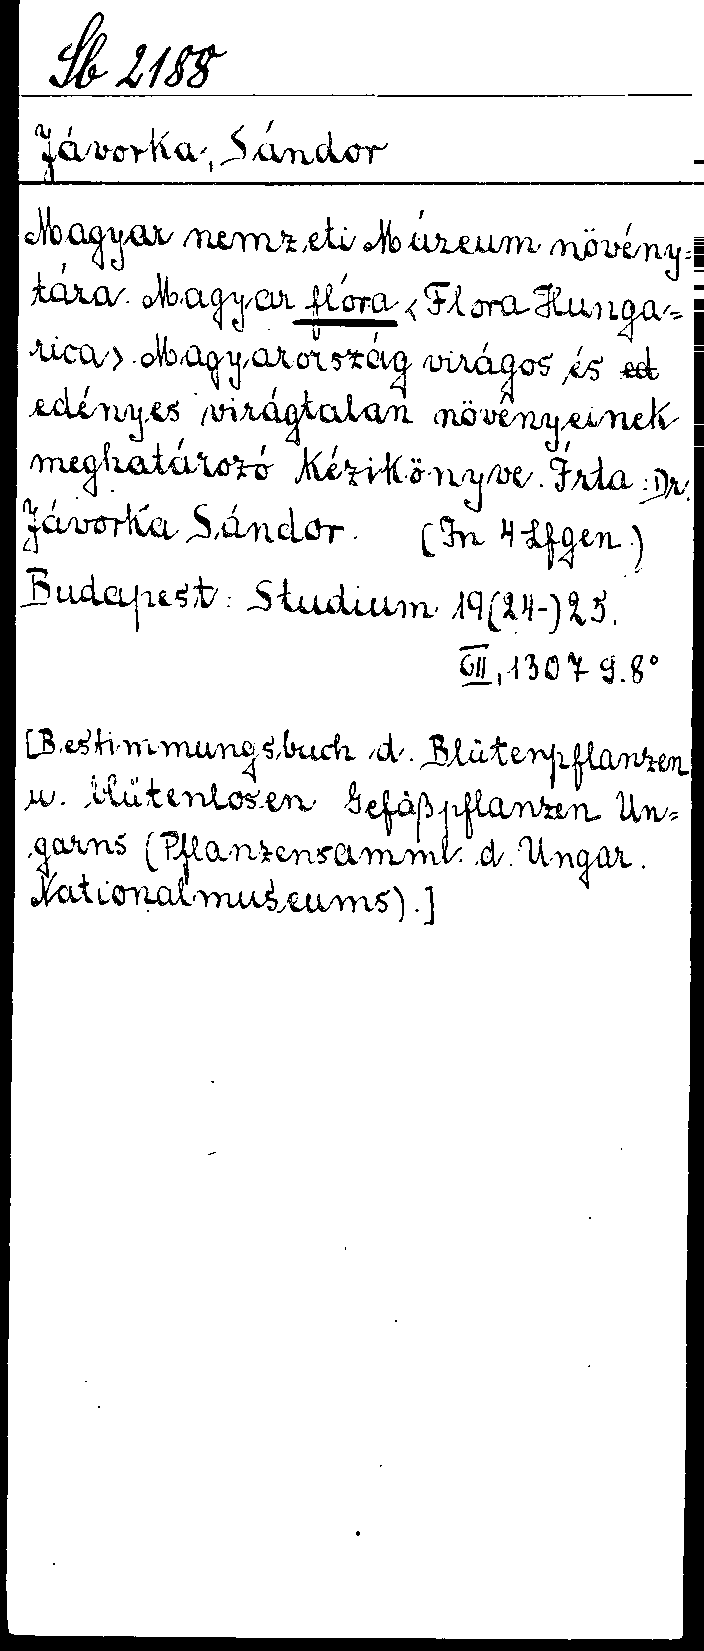 Sb 2188
Jávorka, Sándor
Magyar nemzeti Múzeum növény=
tára. Magyar flóra <Flora Hunga=
rica>. Magyarország virágos és ed
edényes virágtalan növényeinek
meghatározó kézikönyve. Írta: Dr.
Jávorka Sándor. (In 4 Lfgen.)
Budapest: Studium 19(24-)25.
CII, 1307 S. 8°
[Bestimmungsbuch d. Blütenpflanzen
u. blütenlosen Gefäßpflanzen Un=
garns (Pflanzensamml. d. Ungar.
Nationalmuseums).]